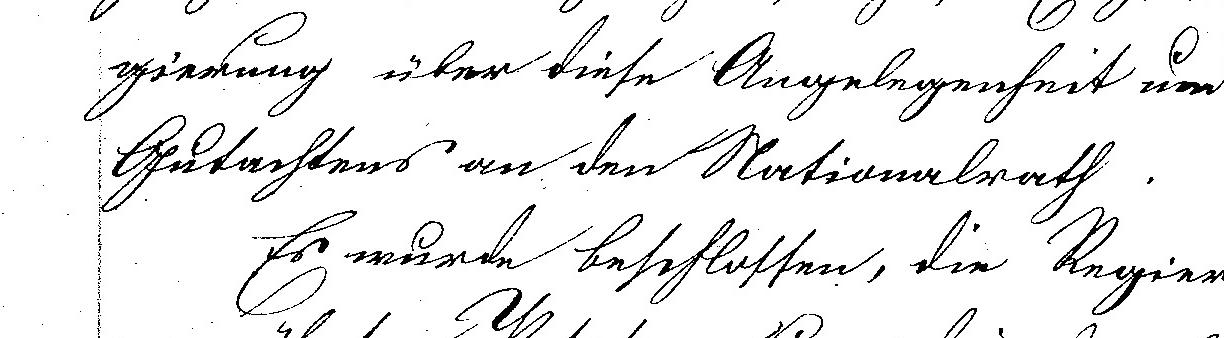 gierung über diese Angelegenheit um
Gutachtens an den Nationalrath.
Es wurde beschlossen, die Regier